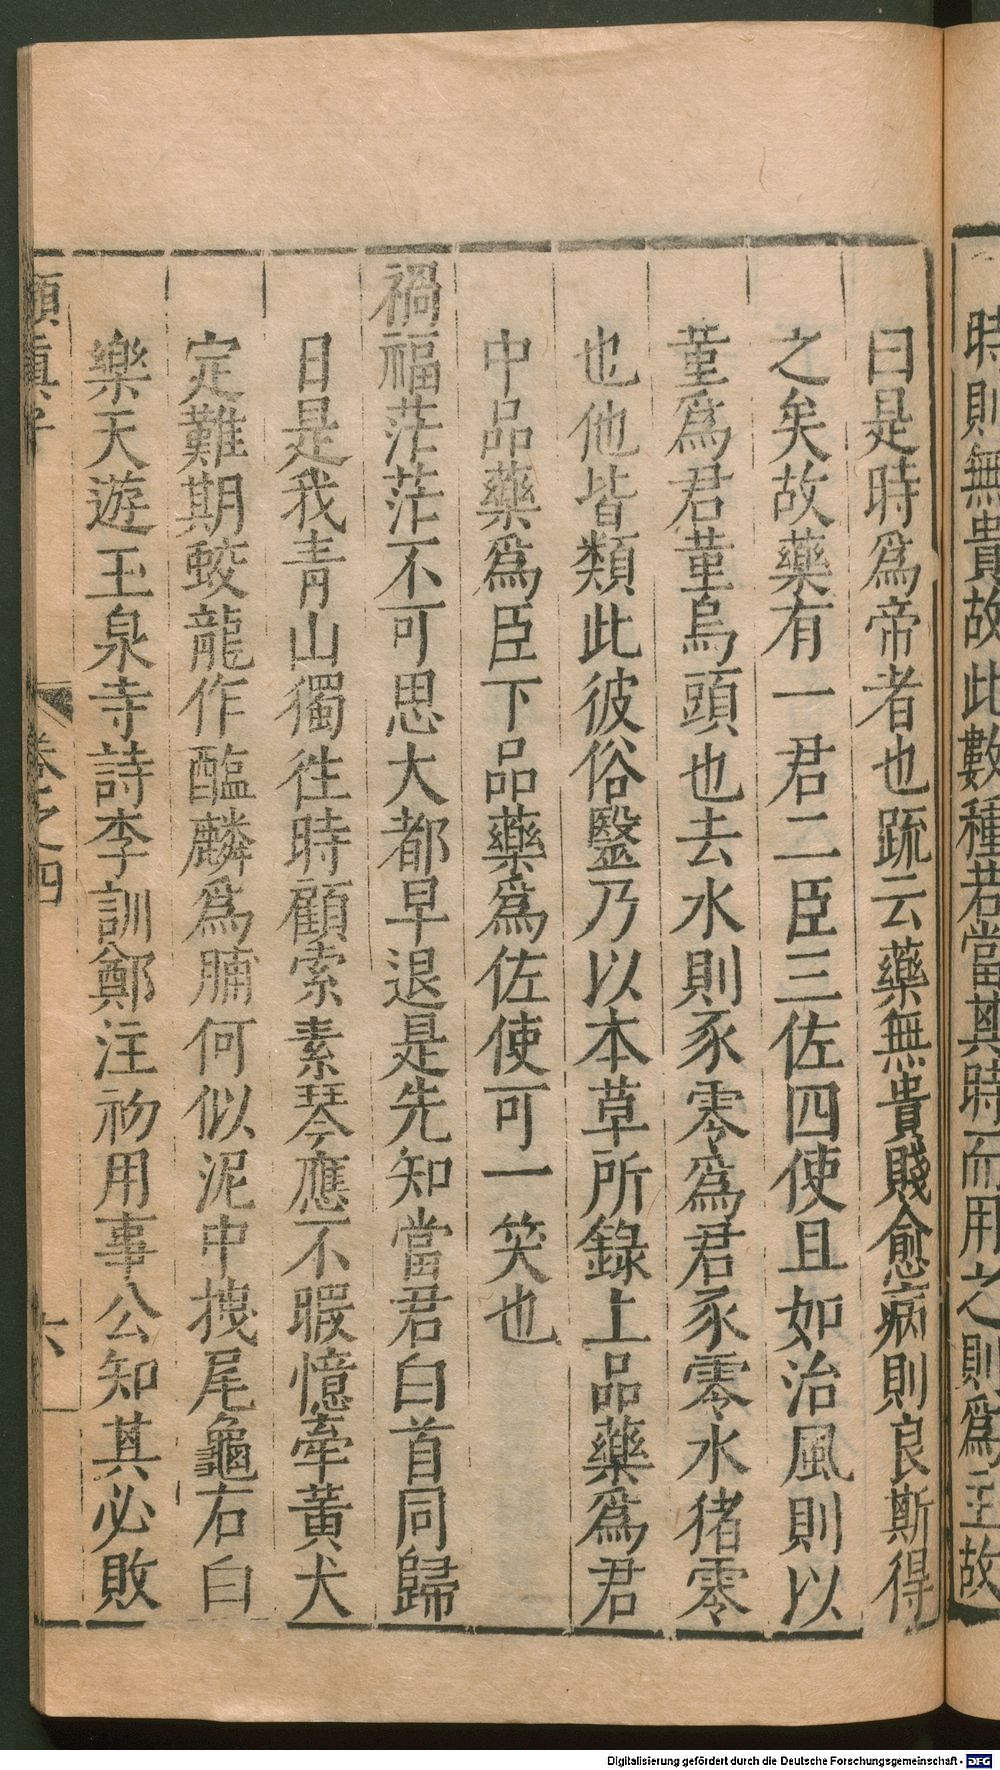 時則無貴故此數種若當其時而用之則爲主故
曰是時爲帝者也䟽云藥無貴賤愈病則良斯得
之矣故藥有一君二臣三佐四使且如治風則以
菫爲君菫烏頭也去水則豕零爲君豕零水猪零
也他皆類此彼俗醫乃以本草所錄上品藥爲君
中品藥爲臣下品藥爲佐使可一笑也
禍福茫茫不可思大都早退是先知當君白首同歸
日是我青山獨徃時顧索素琴應不暇憶牽黃犬
定難期蛟龍作醢麟爲脯何似泥中拽尾龜右白
樂天遊玉泉寺詩李訓鄭注初用事公知其必敗
卷之四
六
Digitalisierung gefördert durch die Deutsche Forschungsgemeinschaft - DFG